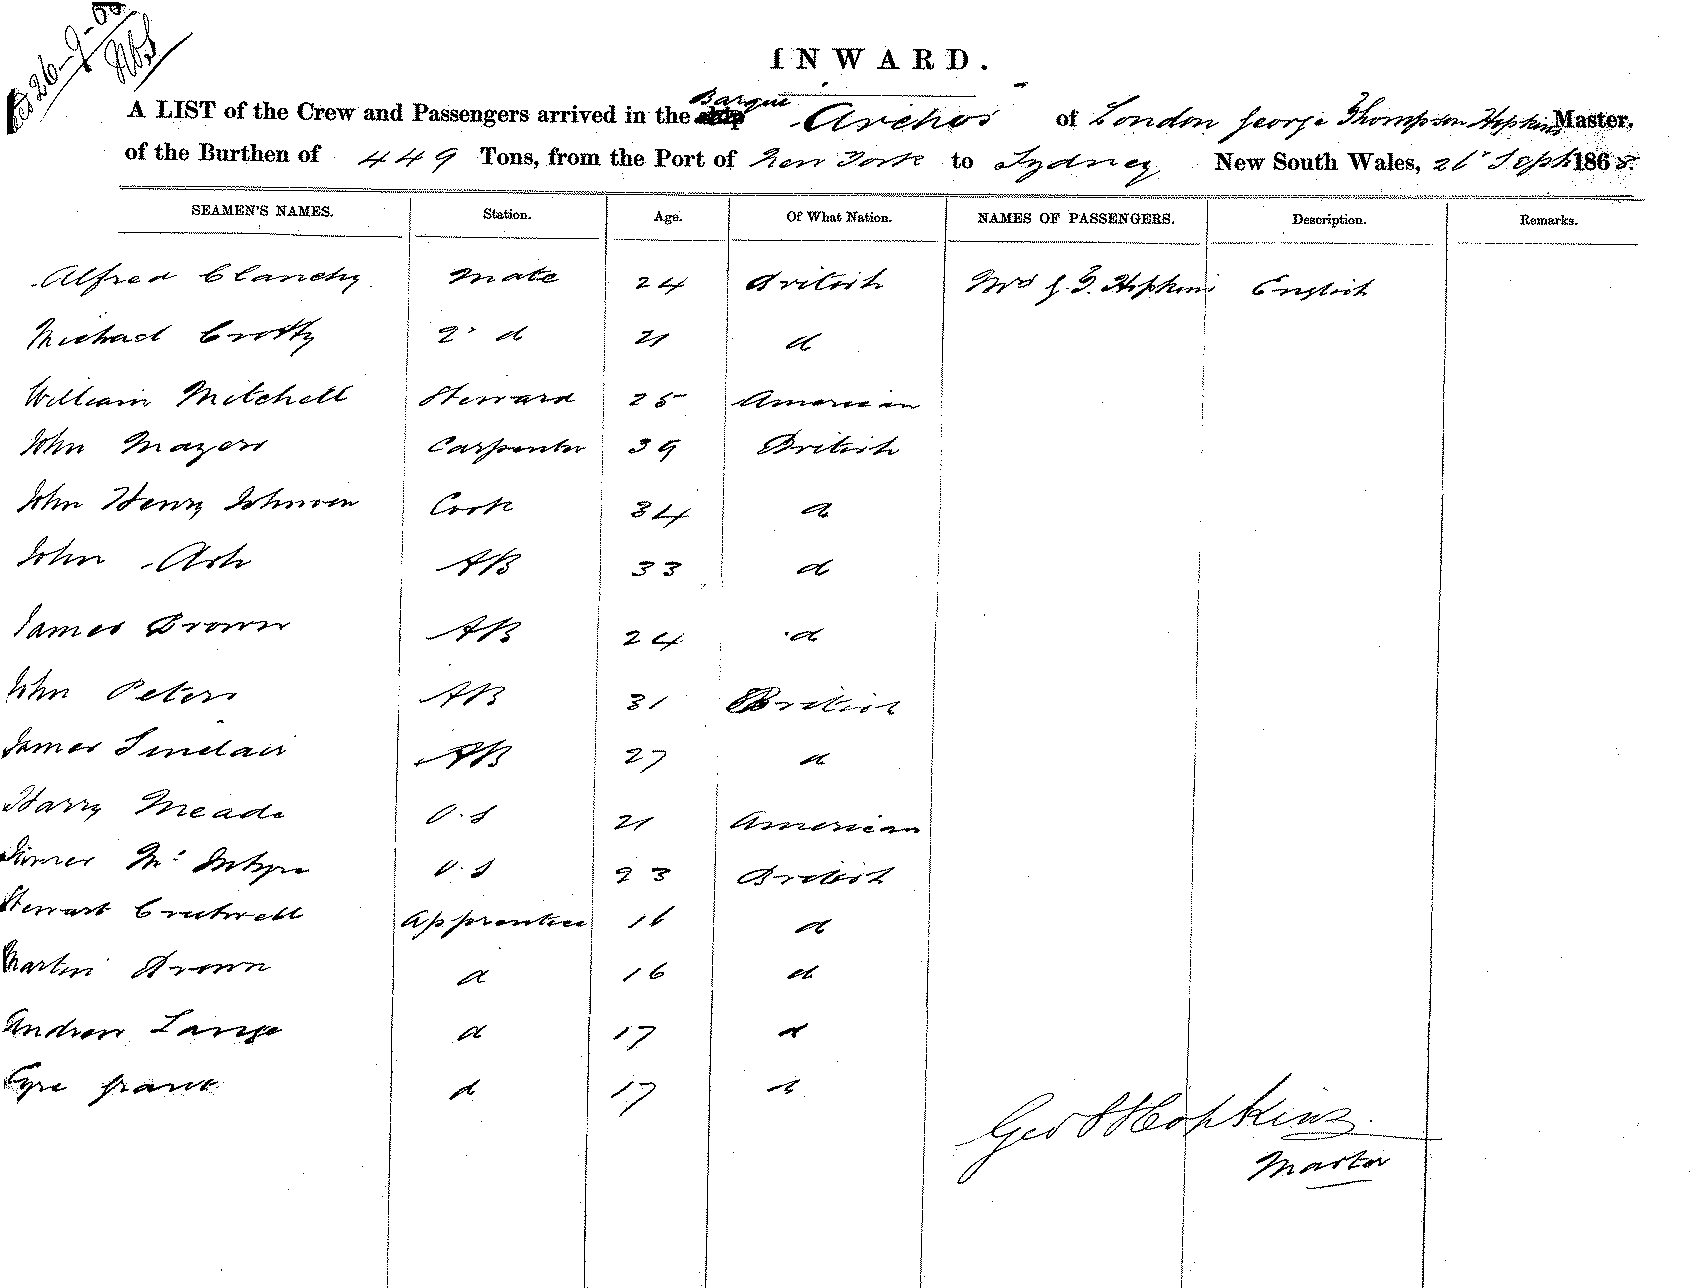 26-9-68
INWARD.
A LIST of the Crew and Passengers arrived in the Barque Archos of London George Thompson Hopkins Master,
of the Burthen of 449 Tons, from the Port of New York to Sydney New South Wales, 26 Sept 1868.
SEAMEN'S NAMES. Station. Age. Of What Nation. NAMES OF PASSENGERS. Description. Remarks.
Alfred Clanchy Mate 24 British Mrs G. T. Hopkins English
Michael Crotty 2d 21 d
William Mitchell Steward 25 American
John Mayers Carpenter 39 British
John Henry Johnson Cook 34 d
John Ash AB 33 d
James Brown AB 24 d
John Peters AB 31 British
James Sinclair AB 27 d
Harry Meade O.S 21 American
James Mc Intyre O.S 23 British
Stewart Crutwell Apprentice 16 d
Martin Brown d 16 d
Andrew Lange d 17 d
Eyre Grant d 17 d
Geo T Hopkins
Master